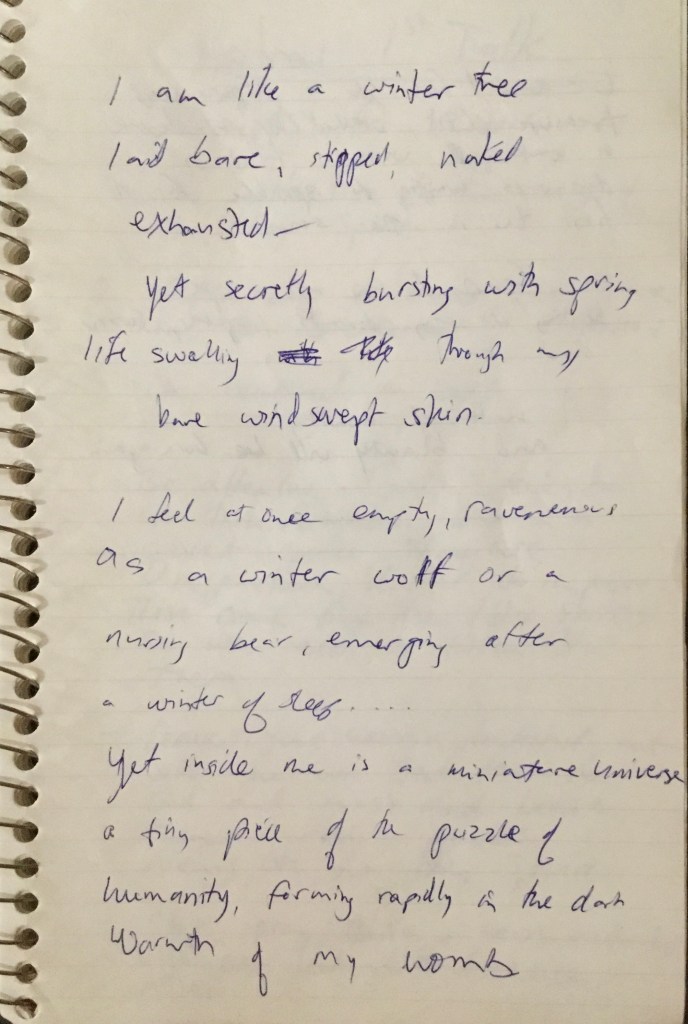 I am like a winter tree
laid bare, stripped, naked
exhausted—
yet secretly bursting with spring
life swelling through my
bare windswept skin.
I feel at once empty, ravenenous
as a winter wolf or a
nursing bear, emerging after
a winter of sleep.....
Yet inside me is a miniature universe
a tiny piece of the puzzle of
humanity, forming rapidly in the dark
Warmth of my womb